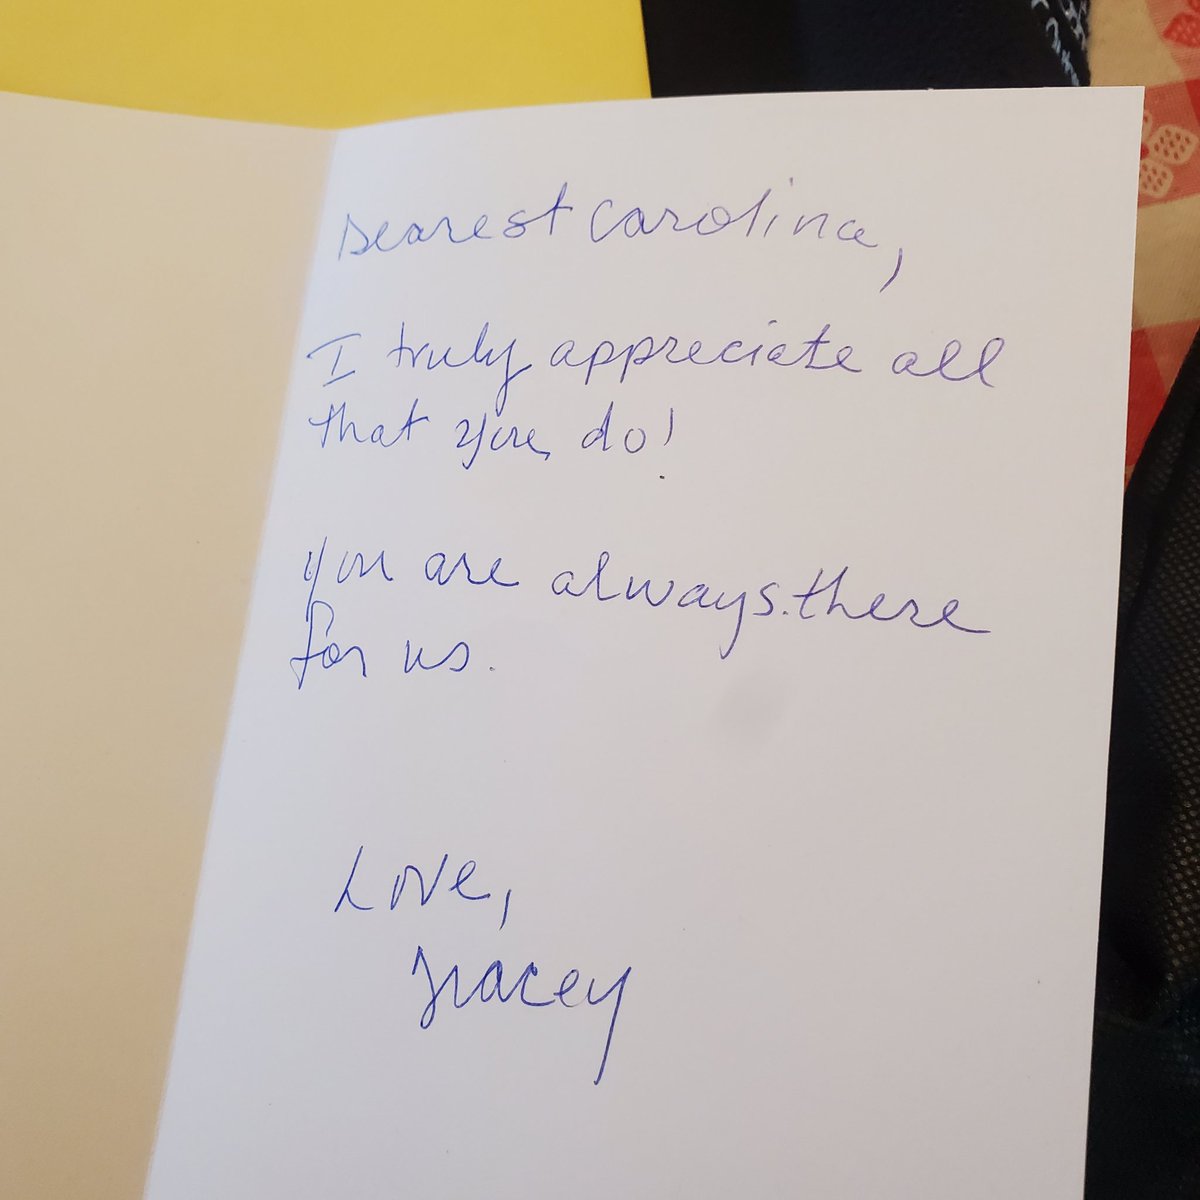 Dearest Carolina,
I truly appreciate all
that you do!
You are always there
for us.
Love,
Tracey